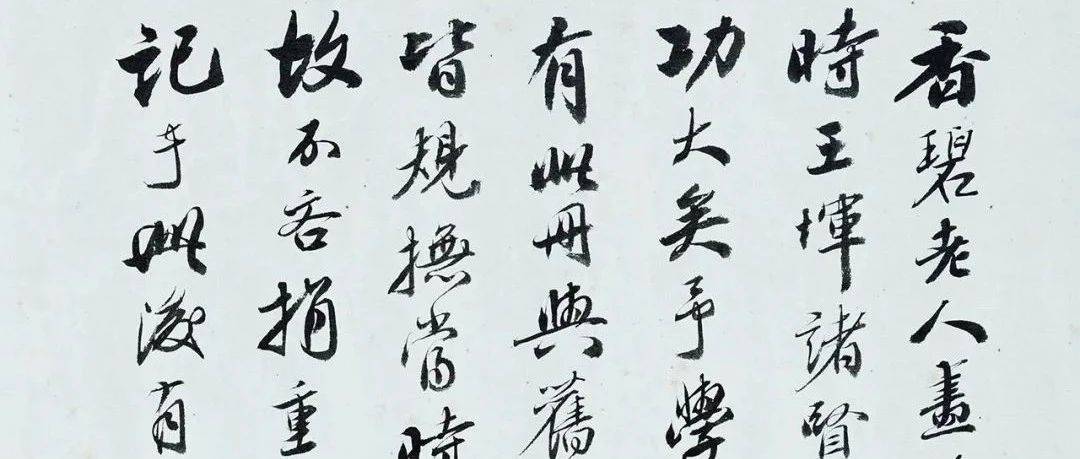 香碧老人畫
時王惲諸賢
功大矣予學
有此冊與舊
皆規撫當時
故不吝捐重
記于此後有